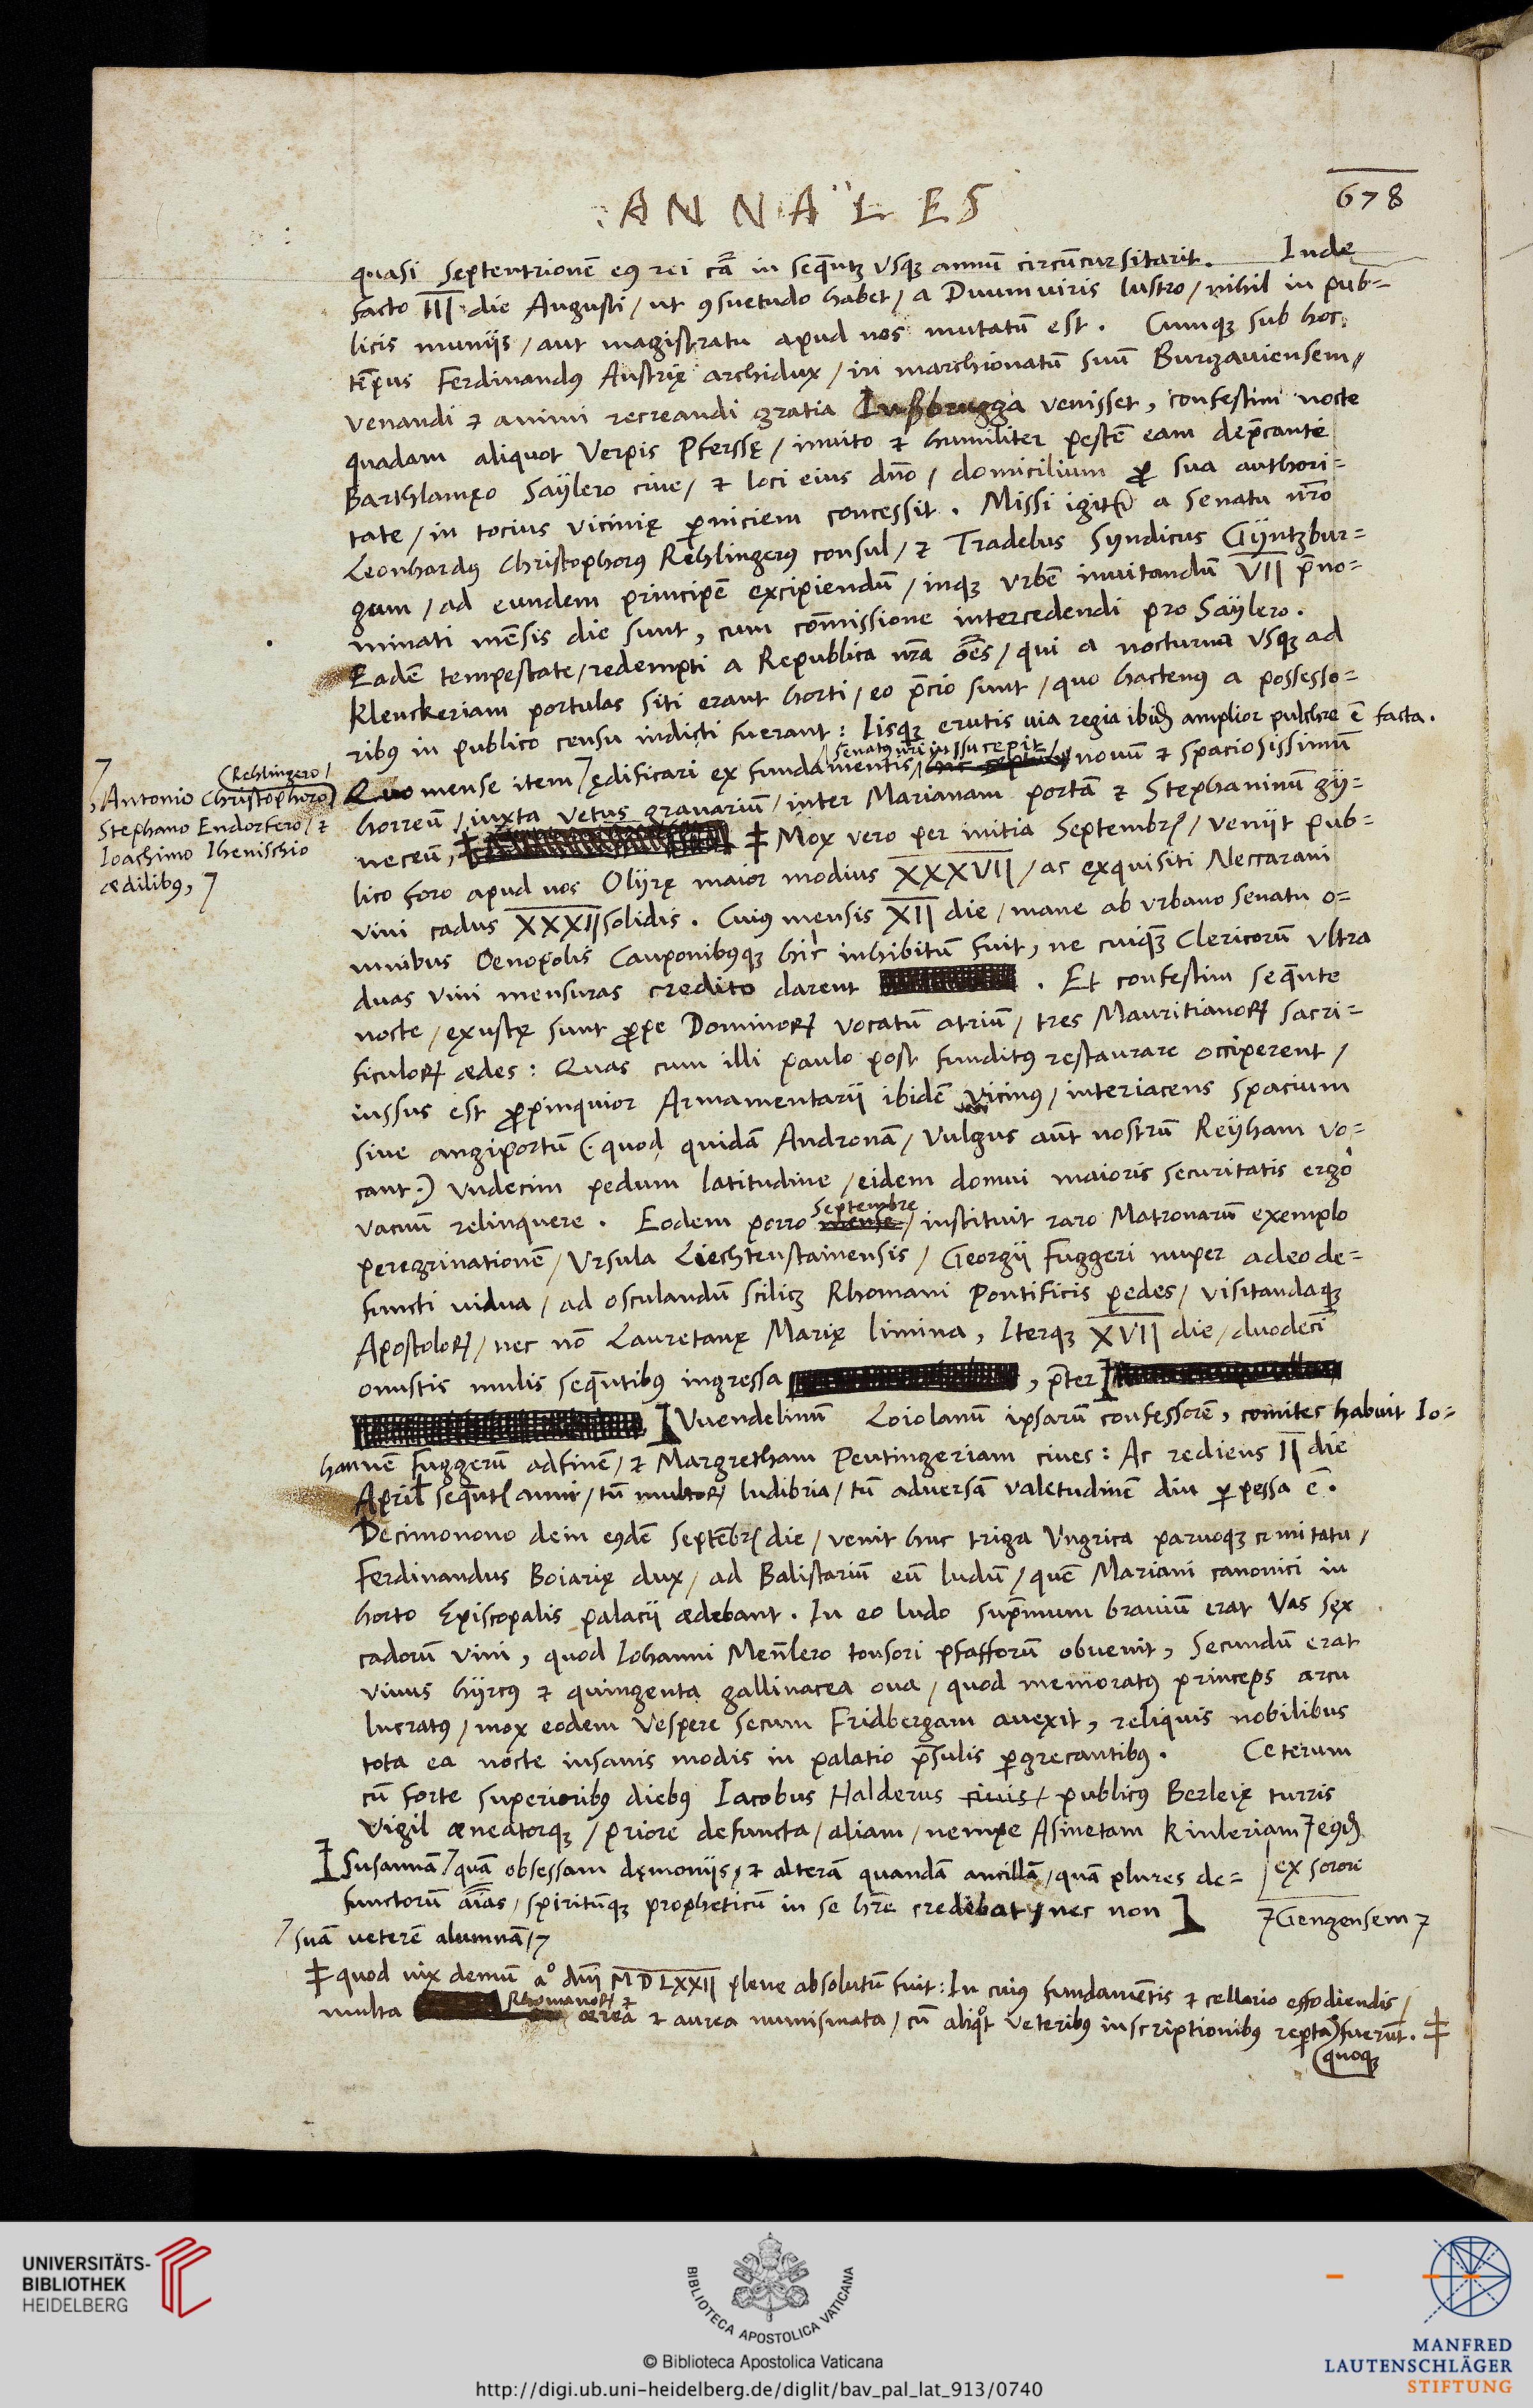 ANNALES
678
quasi septentrionē eꝰ rei cā in sequētꝫ vsqꝫ annū circūcursitarit. Inde
facto III die Augusti / ut ꝯsuetudo habet / a Duumuiris lustro / nihil in pub=
licis munijs / aut magistratu apud nos mutatū est. Cumqꝫ sub hoc
tēpus Ferdinandꝰ Austrię archidux / in marchionatū suū Burgauiensem
venandi & animi recreandi gratia Inßbrugga venisset, confestim nocte
quadam aliquot Verpis Pferssę / inuito & humiliter pestē eam dep̄cante
Barthlamęo Saÿlero ciue / & loci eius dn̄o / domicilium ꝓ sua authori=
tate / in tocius vicinię ꝑniciem concessit. Missi igitᷣ a Senatu nr̄o
Leonhardꝰ Christophorꝰ Rehlingerꝰ consul / & Tradelus Syndicus Gÿntzbur=
gum / ad eundem principē excipiendū / inqꝫ vrbē inuitandū VII p̄no=
minati mēsis die sunt, cum cōmissione intercedendi pro Saÿlero.
Eadē tempestate / redempti a Republica nr̄a oēs / qui a nocturna vsqꝫ ad
Klenckeriam portulas siti erant horti / eo p̄cio sunt / quo hactenꝰ a possesso=
ribꝰ in publico censu indicti fuerant: Iisqꝫ erutis uia regia ibidē amplior pulchre ē facta.
senatꝰ nr̄i iussu cepit
Quo mense item ⁊ ędificari ex fundamentis / nouū & spaciosissimū
⁊ (Rehlingero /
, Antonio Christophoro)
Stephano Endorfero / &
Ioachimo Ihenischio
ædilibꝰ, ⁊
horreū / iuxta vetus granariū / inter Marianam portā & Stephaninū gÿ=
neceū, ‡ ‡ Mox vero per initia Septembrꝭ / veniit pub=
lico foro apud nos Olÿrę maior modius XXXVII / ac exquisiti Neccarani
vini cadus XXXII solidis. Cuiꝰ mensis XII die / mane ab vrbano senatu o=
mnibus Oenopolis Cauponibꝰqꝫ hic inhibitū fuit, ne cuiqꝫ Clericorū vltra
duas vini mensuras credito darent . Et confestim sequēte
nocte / exustę sunt ꝓpe Dominoꝝ vocatū atriū / tres Mauritianoꝝ sacri=
ficuloꝝ ædes: Quas cum illi paulo post funditꝰ restaurare occiperent /
iussus est ꝓpinquior Armamentarij ibidē vicinꝰ / interiacens spacium
siue angiportū (quod quidā Andronā / Vulgus aūt nostrū Reÿham vo=
cant) vndecim pedum latitudine / eidem domui maioris securitatis ergo
Septembre
vacuū relinquere. Eodem porro mense / instituit raro Matronarū exemplo
peregrinationē / Vrsula Liechtenstainensis / Georgij Fuggeri nuper adeo de=
functi vidua / ad osculandū scilicꝫ Rhomani Pontificis pedes / visitandaqꝫ
Apostoloꝝ / nec nō Lauretanę Marię limina, Iterqꝫ XVII die / duodecī
onustis mulis sequētibꝰ ingressa , p̄ter
Vuendelinum Loiolanū ipsarū confessorē, comites habuit Io=
hannē Fuggerū adfinē / & Margretham Peutingeriam ciues: Ac rediens II die
April sequētꝭ anni / tū multoꝝ ludibria / tū aduersā valetudinē diu ꝑpessa ē.
Decimonono dein eꝰdē Septēbrꝭ die / venit huc triga Vngrica paruoqꝫ comitatu /
Ferdinandus Boiarię dux / ad Balistariū eū ludū / quē Mariani canonici in
horto Episcopalis palacij ædebant. In eo ludo sup̄mum brauiū erat Vas sex
cadorū vini, quod Iohanni Men̄lero tonsori pfafforū obuenit, Secundū erat
viuus hÿrcꝰ & quingenta gallinacea oua / quod memoratꝰ princeps arcu
lucratꝰ / mox eodem Vespere secum Fridbergam auexit, reliquis nobilibus
tota ea nocte insanis modis in palatio p̄sulis ꝑgrecantibꝰ. Ceterum
cū forte superioribꝰ diebꝰ Iacobus Halderus ciuis / publicꝰ Berleię turris
Vigil æneatorqꝫ / priore defuncta / aliam / nempe Asinetam Kinleriam ⁊ eꝰdē
ex sorore
Susannā ⁊ quā obsessam dęmonijs, & alterā quandā ancillā / quā plures de=
functorū aīas / spiritūqꝫ propheticū in se hr̄e credebat / nec non
⁊ Gengensem ⁊
⁊ suā veterē alumnā / ⁊
‡ quod vix demū aº dn̄i MDLXXII plene absolutū fuit: In cuius fundamētis & cellario effodiendis /
Rhomanoꝝ &
multa ærea & aurea numismata / cū aliqͦt veteribꝰ inscriptionibꝰ reperta) fuerūt. ‡
(quoqꝫ
UNIVERSITÄTS-
BIBLIOTHEK
HEIDELBERG
BIBLIOTECA APOSTOLICA VATICANA
© Biblioteca Apostolica Vaticana
http://digi.ub.uni-heidelberg.de/diglit/bav_pal_lat_913/0740
MANFRED
LAUTENSCHLÄGER
STIFTUNG